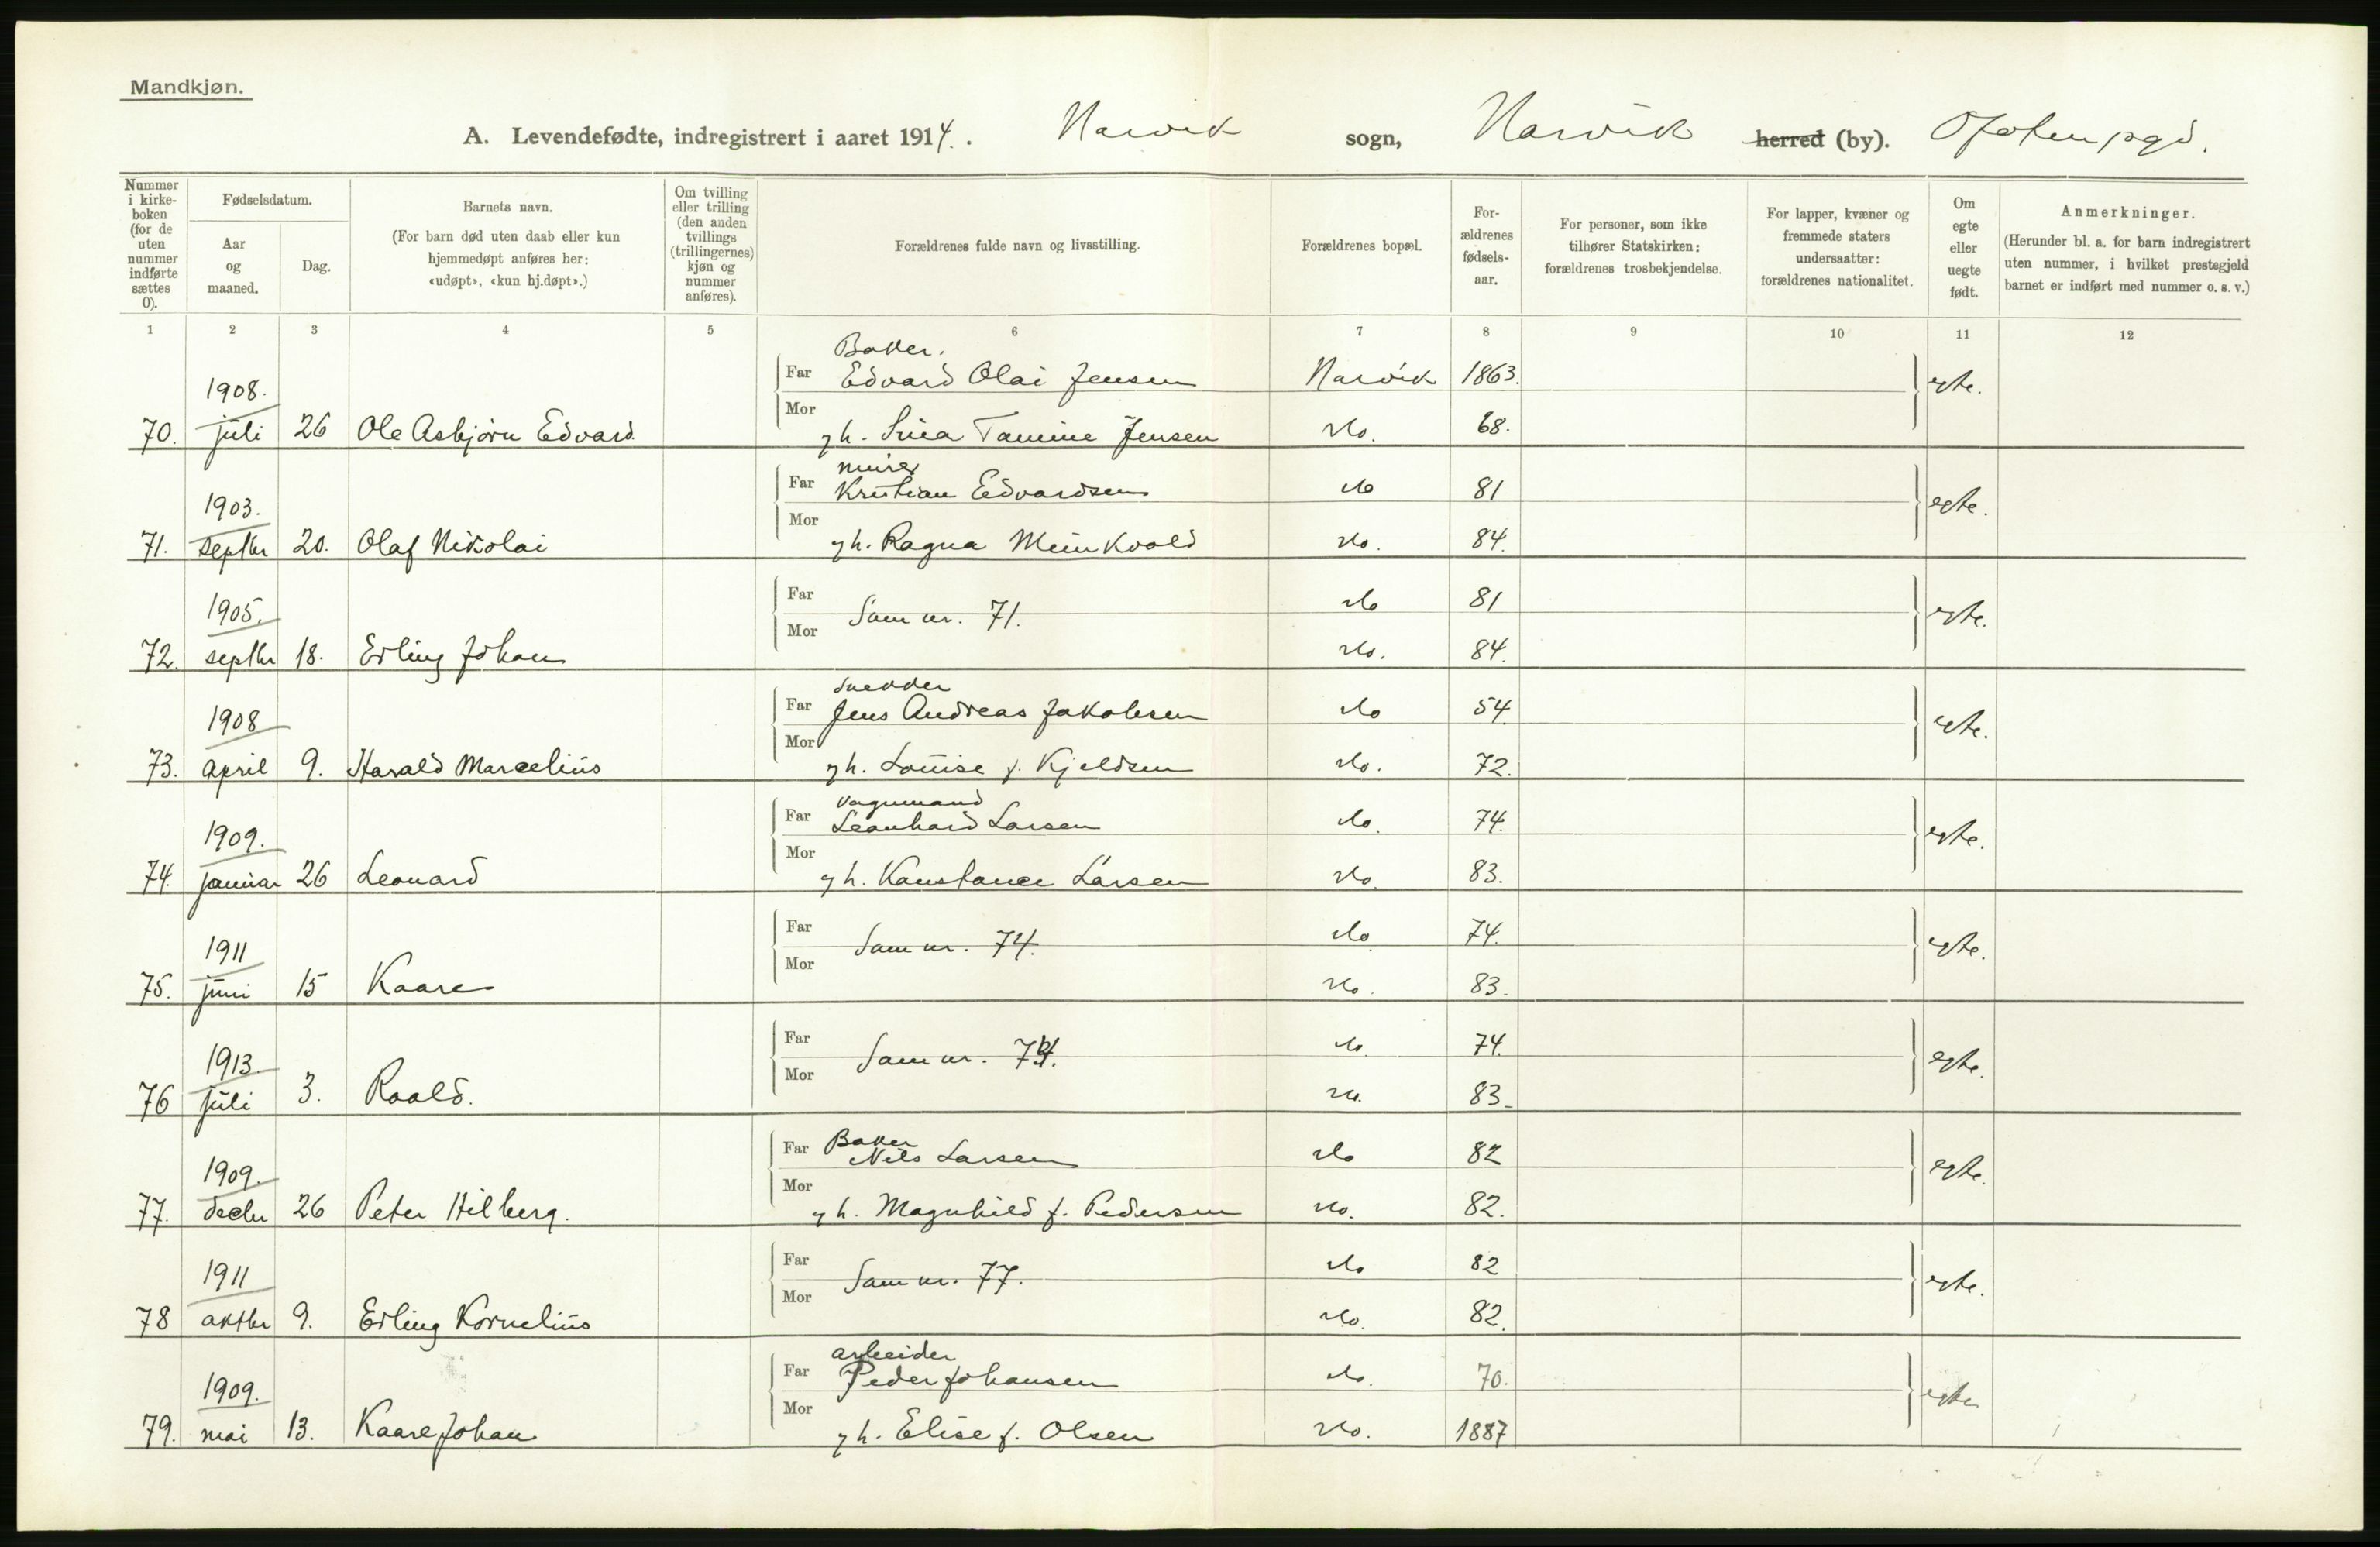 Mandkjøn.
A. Levendefødte, indregistrert i aaret 1914. Narvik sogn, Narvik herred (by). Ofoten pgd.
Nummer i kirkeboken (for de uten nummer indførte sættes 0).
Fødselsdatum.
Aar og maaned.
Dag.
Barnets navn.
(For barn død uten daab eller kun hjemmedøpt anføres her: «udøpt», «kun hj.døpt».)
Om tvilling eller trilling (den anden tvillings (trillingernes) kjøn og nummer anføres).
Forældrenes fulde navn og livsstilling.
Forældrenes bopæl.
Forældrenes fødselsaar.
For personer, som ikke tilhører Statskirken: forældrenes trosbekjendelse.
For lapper, kvæner og fremmede staters undersaatter: forældrenes nationalitet.
Om egte eller uegte født.
Anmerkninger.
(Herunder bl. a. for barn indregistrert uten nummer, i hvilket prestegjeld barnet er indført med nummer o. s. v.)
1 2 3 4 5 6 7 8 9 10 11 12
Baker.
1908. Far Edvard Olai Jensen Narvik 1863. egte.
70. juli 26 Ole Asbjørn Edvard Mor g h. Sina Tamine Jensen do. 68.
murer
1903. Far Kristian Edvardsen do 81 egte.
71. septbr 20. Olaf Nikolai Mor g h. Ragna Munkvold do. 84.
1905. Far Sam nr. 71. do 81 egte.
72. septbr 18. Erling Johan Mor do. 84.
Snekker
1908 Far Jens Andreas Jakobsen do 54. egte.
73. april 9. Harald Marcelius Mor g h. Louise f. Kjeldsen do. 72.
Vognmand
1909. Far Leonhard Larsen do. 74. egte.
74. januar 26 Leonard Mor g h. Konstance Larsen do. 83.
1911 Far Sam nr. 74. do 74. egte.
75. juni 15 Kaare Mor do. 83.
1913. Far Sam nr. 74. do. 74. egte.
76 juli 3. Roald. Mor do. 83.
Baker
1909. Far Nils Larsen do 82 egte.
77. decbr 26 Peter Hilberg. Mor g h. Magnhild f. Pedersen do. 82.
1911 Far Sam nr. 77. do 82 egte.
78 oktbr 9. Erling Kornelius Mor do. 82.
arbeider
1909. Far Peder Johansen do. 70. egte
79. mai 13. Kaare Johan Mor g h. Elise f. Olsen do. 1887